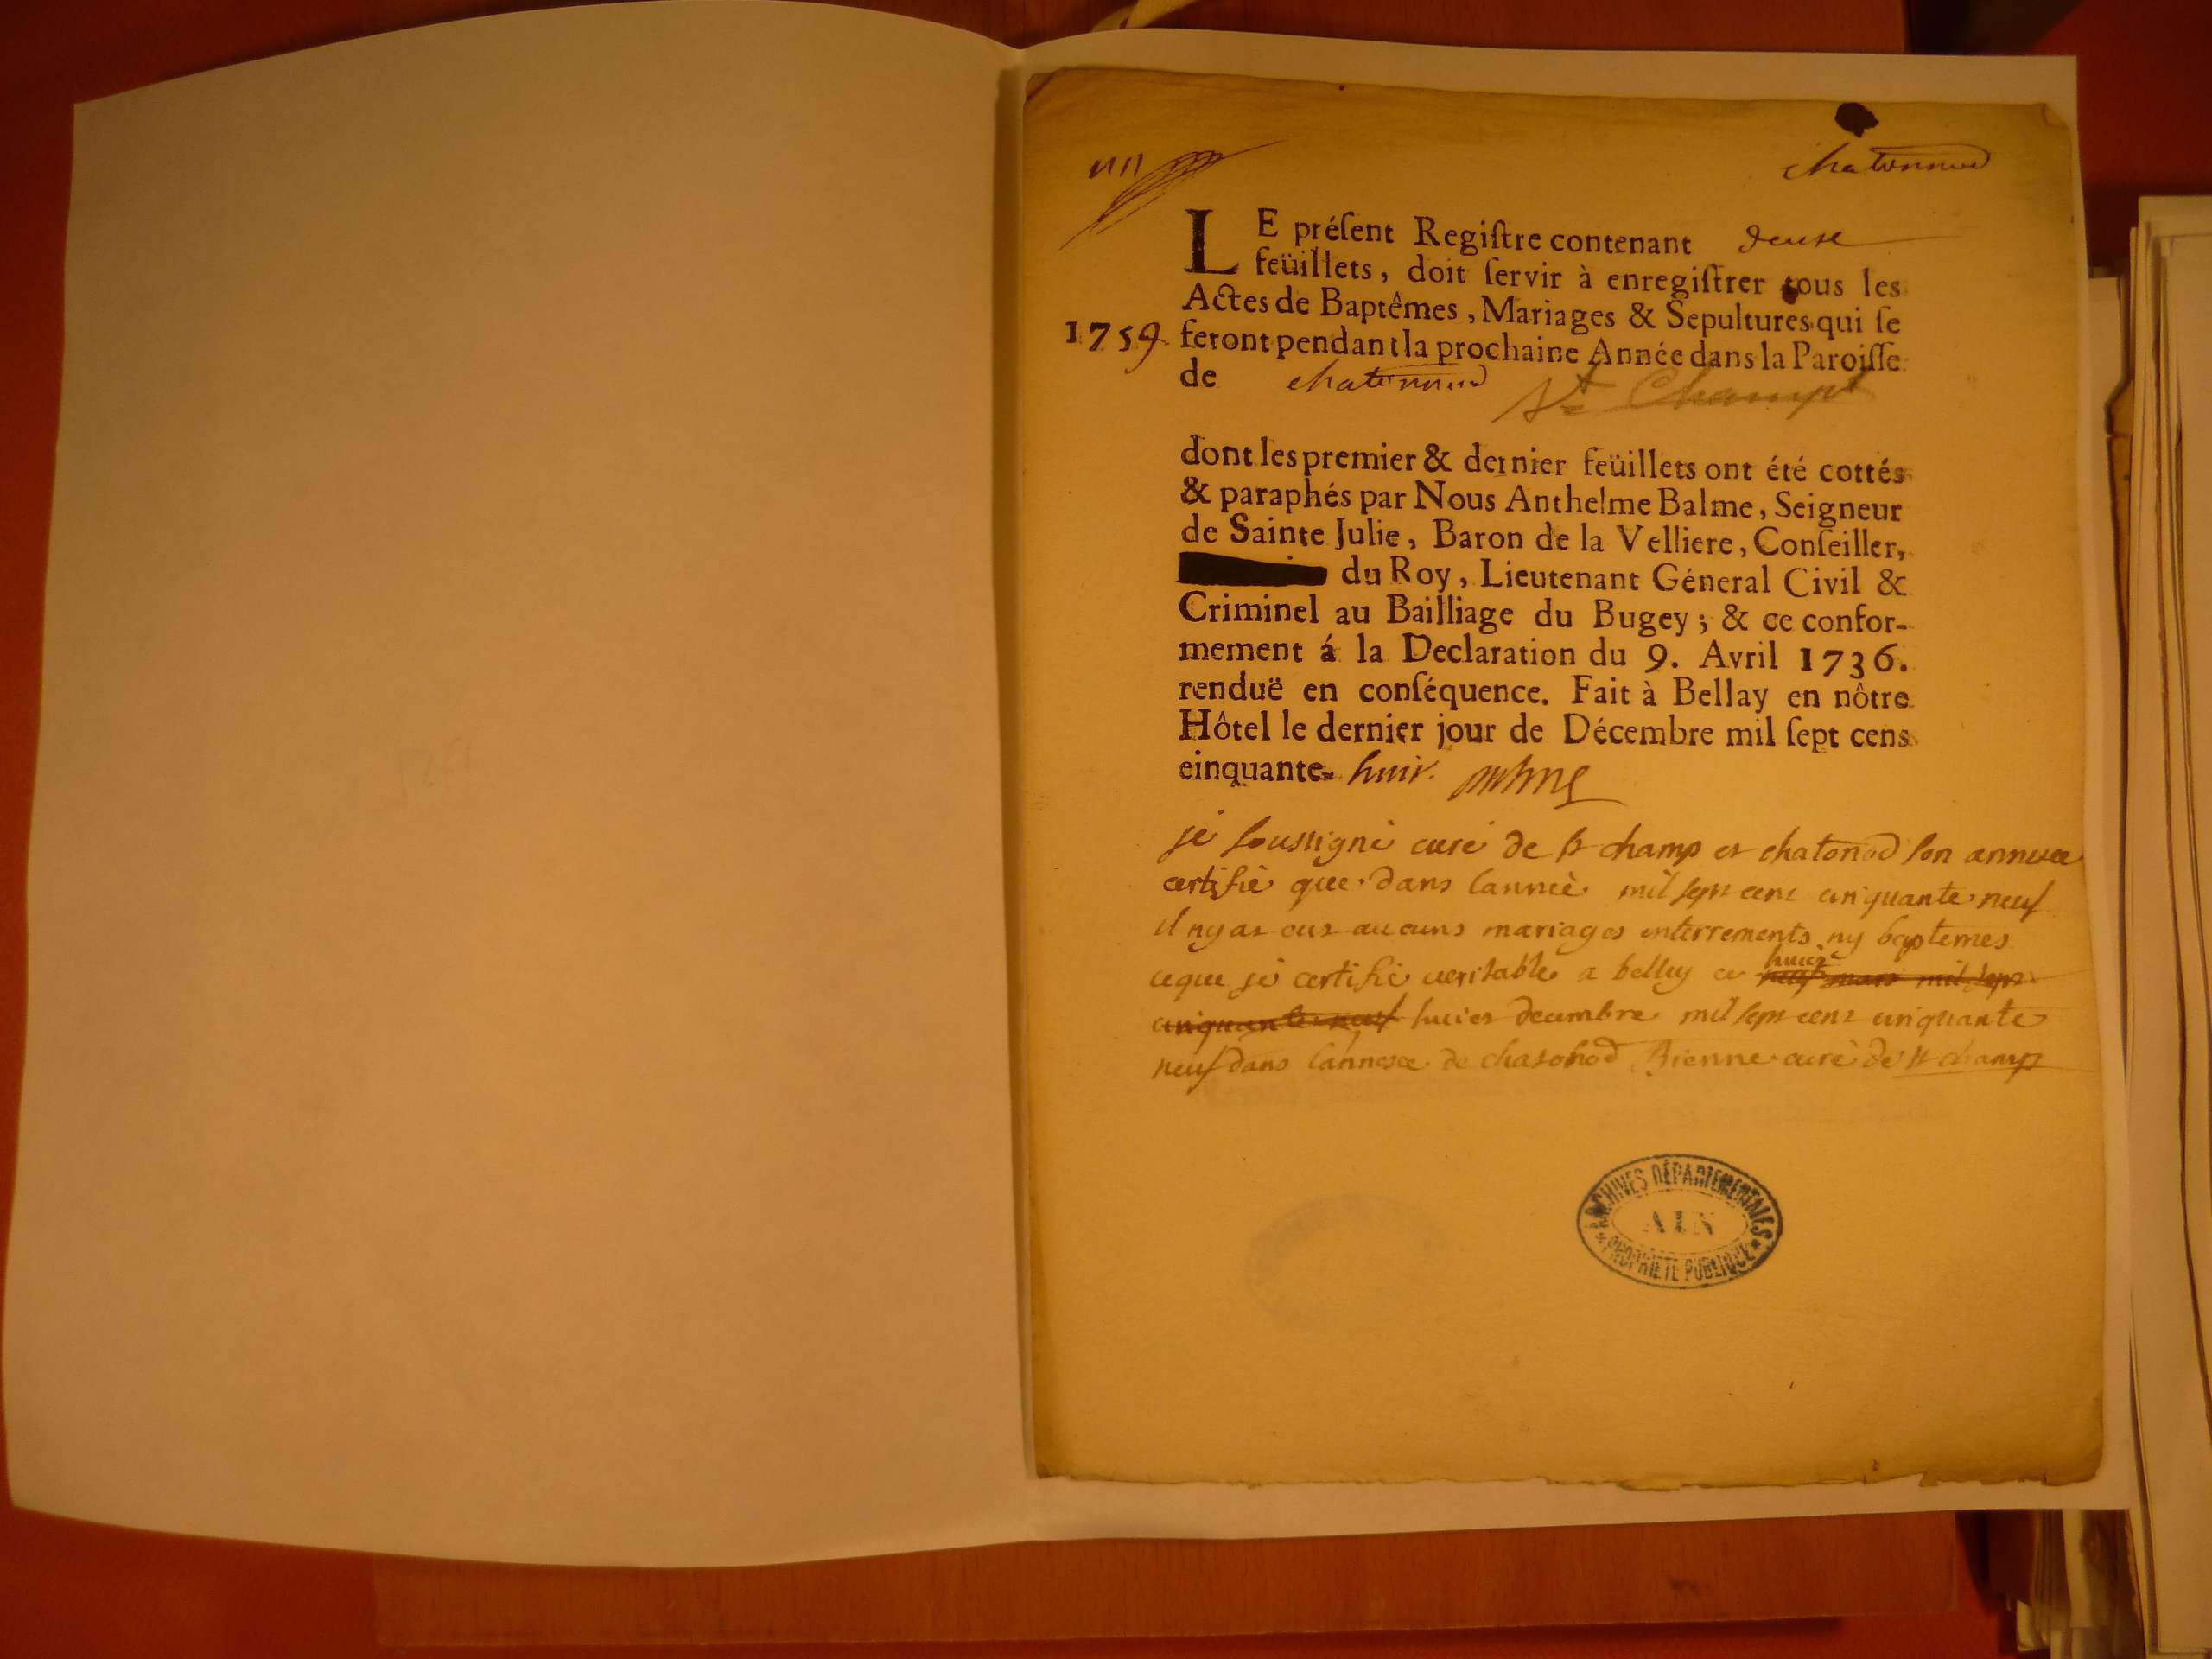 chatonnod
LE préſent Regiſtre contenant deux
feüillets, doit ſervir à enregiſtrer tous les
Actes de Baptêmes, Mariages & Sepultures qui ſe
1759 feront pendant la prochaine Année dans la Paroiſſe
de chatonnod St Champt
dont les premier & dernier feüillets ont été cottés
& paraphés par Nous Anthelme Balme, Seigneur
de Sainte Julie, Baron de la Velliere, Conſeiller,
du Roy, Lieutenant Géneral Civil &
Criminel au Bailliage du Bugey; & ce confor-
mement á la Declaration du 9. Avril 1736.
renduë en conſéquence. Fait à Bellay en nôtre
Hôtel le dernier jour de Décembre mil ſept cens
einquante- huit.
je soussigné curé de st champ et chatonod son annexe
certifie que dans l'année mil sept cent cinquante neuf
il ny at eut aucuns mariages enterrements ny baptemes
ceque je certifie veritable a belley ce huict neuf mars mil sept
cinquante neuf decembre mil sept cent cinquante
neuf dans l'annexe de chatonod Bienne curé de st champ
ARCHIVES DÉPARTEMENTALES
AIN
PROPRIÉTÉ PUBLIQUE